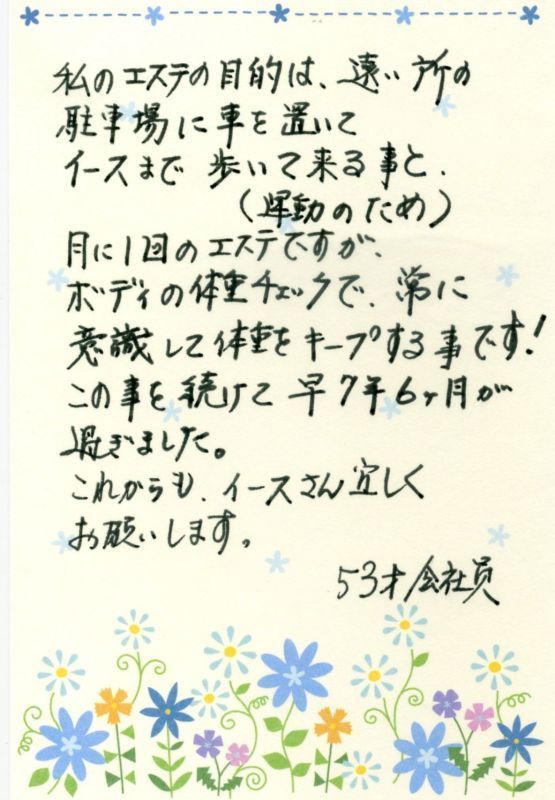 私のエステの目的は、遠い所の
駐車場に車を置いて
イースまで 歩いて来る事と、
(運動のため)
月に1回のエステですが、
ボディの体重チェックで、常に
意識して体重をキープする事です!
この事を続けて 早7年6ヶ月が
過ぎました。
これからも、イースさん宜しく
お願いします。
53才会社員